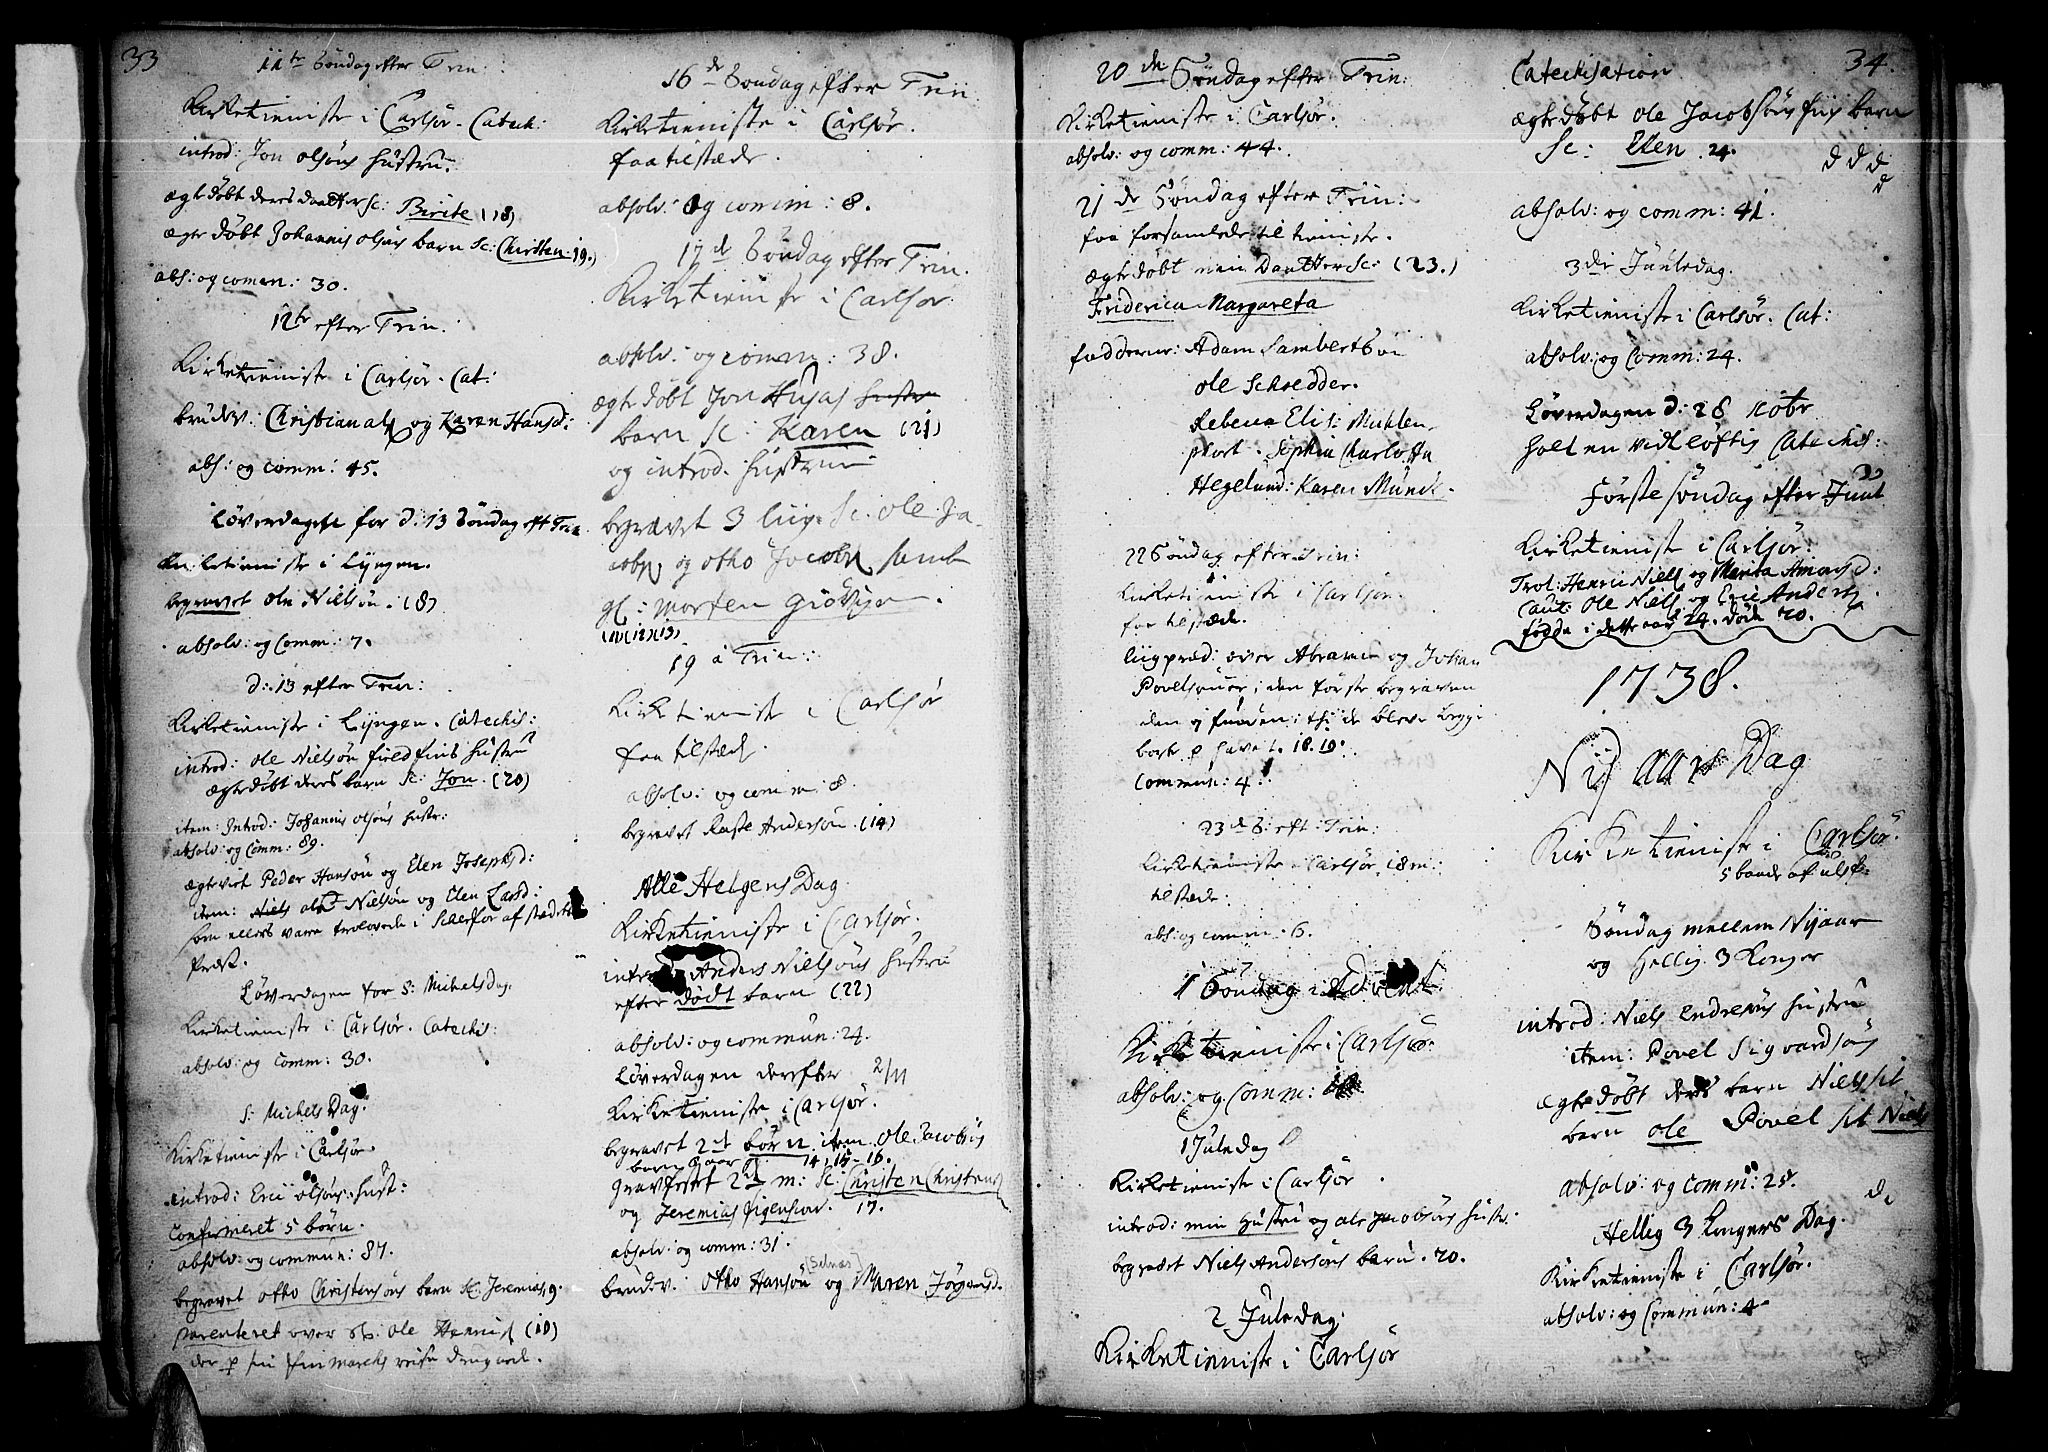 33
11te Søndag efter Trin:
Kirketieniste i Carlsøe. Catech:
introd: Jon olsøns hustru.
ægtedøbt deres daatter sc: Birite (18)
ægte døbt Johannis olsøns barn sc: Christen 19.)
abs: og comm: 30.
12te efter Trin:
Kirketieniste i Carlsøe. Cat:
brudev: Christian als og Karen Hansd:
abs: og comm: 45.
Løverdagen for d: 13 Søndag eft Trin
Kirketieniste i Lyngen.
begravet ole Nielsøn. (8)
absolv: og Comm: 7.
d: 13 efter Trin:
Kirketieniste i Lyngen. Catechis:
introd: ole Nielsøn hustru
ægtedøbt deres barn sc: Jon. (20)
item: Introd: Johannis olsøns hustr:
absolv: og Comm: 89.
ægtevict Peder Hansøn og Elen Josephsd:
item: Niels Nielsøn og Elen Larsd:
som ellers vare trolovede i af stædets
Præst.
Løverdagen for S: Michels Dag.
Kirketieniste i Carlsøe. Catechis:
absolv: og Comm: 30.
S: Michels Dag.
Kirketieniste i Carlsøe.
introd: Eric olsøns hust:
Confirmeret 5 børn.
absolv: og commun: 87.
begravet otto Christensøns barn sc: Jeremias, 9.
parenteret over ole (10)
16de Søndag efter Trin:
Kirketieniste i Carlsøe.
faa tilstæde.
absolv: og comm: 8.
17de Søndag efter Trin.
Kirketieniste i Carlsøe.
absolv: og comm: 38.
ægte døbt Jon hustru
barn sc: Karen (21)
og introd. hustruen
begravet 3 liig. sc: ole Ja-
cobs og otho Jacobs samt
gl: Morten
(11)(12)(13)
19 a Trin:
Kirketieniste i Carlsøe
faa tilstæde.
absolv: og comm: 8.
begravet Raste Andersøn. (14)
Alle Helgens Dag
Kirketieniste i Carlsøe.
introd: Anders Nielsøns hustru
efter dødt barn (22)
absolv: og commun: 24.
Løverdagen derefter 2/11
Kirketieniste i Carlsøe.
begravet 2de børn item ole Jacobsøns
barn 14, 15 - 16.
gravfestet 2de m: sc: Christen Christens
og Jeremias 17.
absolv: og comm: 31.
(Selnæs)
brudev: otho Hansøn og Maren Jørgensd.
20de Søndag efter Trin:
Kirketieniste i Carlsøe.
absolv: og comm: 44.
21de Søndag efter Trin:
faa forsamlede til tieniste.
ægtedøbt min Daatter sc: (23.)
Friderica Margareta
fadderne: Adam Lambertsøn
ole Schredder.
Rebecca Elis: Muhlen
phort. Sophia Charlotta
Hegelund: Karen Munch.
22 Søndag efter Trin:
Kirketieniste i Carlsøe.
faa tilstæde.
liigpræd: over Abraam og Johan
Povelsønner; den første begraven
den anden: thi de bleve begge
borte p havet. 18. 19.
Commun: 4.
23de S: eft: Trin:
Kirketieniste i Carlsøe. 18 m:
tilstæde.
abs: og comm: 6.
1 Søndag i Advent
Kirketieniste i Carlsøe.
absolv: og Comm:
1 Juledag
Kirketieniste i Carlsøe
introd: min Hustru og ole Jacobsøns hustr.
begravet Niels Andersøns barn. 20.
2 Juledag
Kirketieniste i Carlsøe
34.
Catechisation
ægtedøbt ole Jacobsøns barn
Sc: Elen. 24.
absolv: og comm: 41.
3die Juuledag.
Kirketieniste i Carlsøe. Cat:
absolv: og Comm: 24.
Løverdagen d: 28
holt en vidløftig Catechis:
Første søndag efter Juul
Kirketieniste i Carlsøe:
Trol: Henric Niels og Marita Amunds d:
Caut: ole Niels og Eric Anders
fødde i dette aar 24. døde 20.
1738.
Nij aars Dag
Kirketieniste i Carlsøe.
5 baade af
Søndag mellem Nyaar
og Hellig 3 Konger
introd: Niels Endresøns hustru
item: Povel Sigvardsøns
ægtedøbt deres barn Niels sit
barn ole Povel sit Niels
absolv: og comm: 28.
Hellig 3 Kongers Dag.
Kirketieniste i Carlsøe.
absolv: og Commun: 4